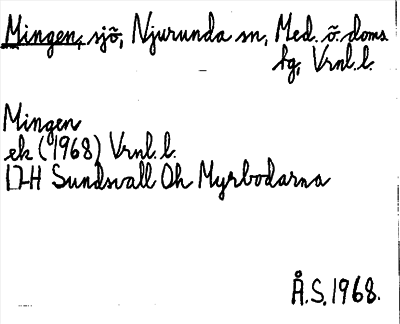 Mingen, sjö, Njurunda sn, Med. ö. doms
hg, Vrnl. l.
Mingen
ek (1968) Vrnl. l.
17H Sundsvall Oh Myrbodarna
Å.S. 1968.